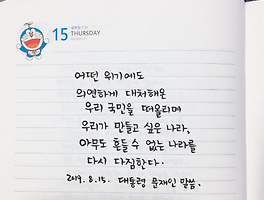 15 THURSDAY
어떤 위기에도
의연하게 대처해온
우리 국민을 떠올리며
우리가 만들고 싶은 나라,
아무도 흔들 수 없는 나라를
다시 다짐한다.
2019. 8. 15. 대통령 문재인 말씀.